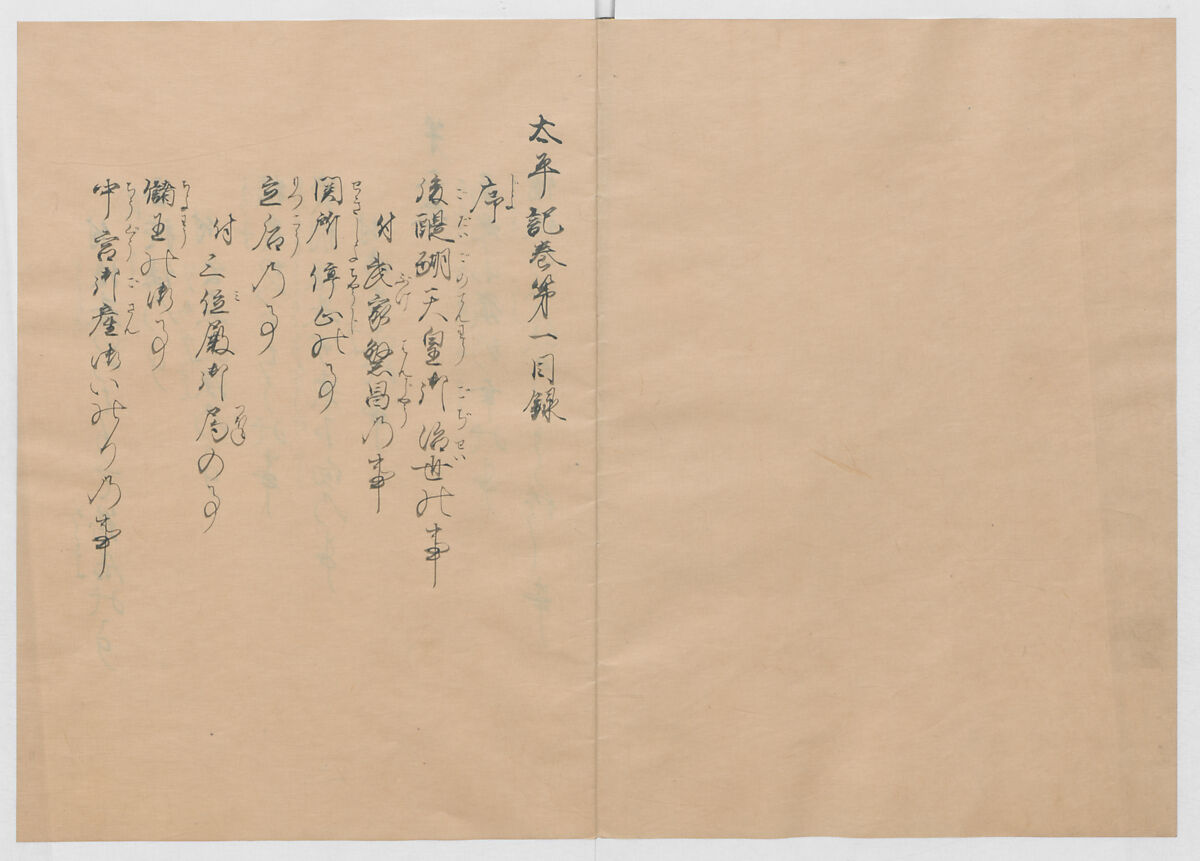 太平記巻第一目録
序
後醍醐天皇御治世の事
付武家繁昌乃事
関所停止の事
立后乃事
付三位殿御局の事
儲王の御事
中宮御産御いのり乃事